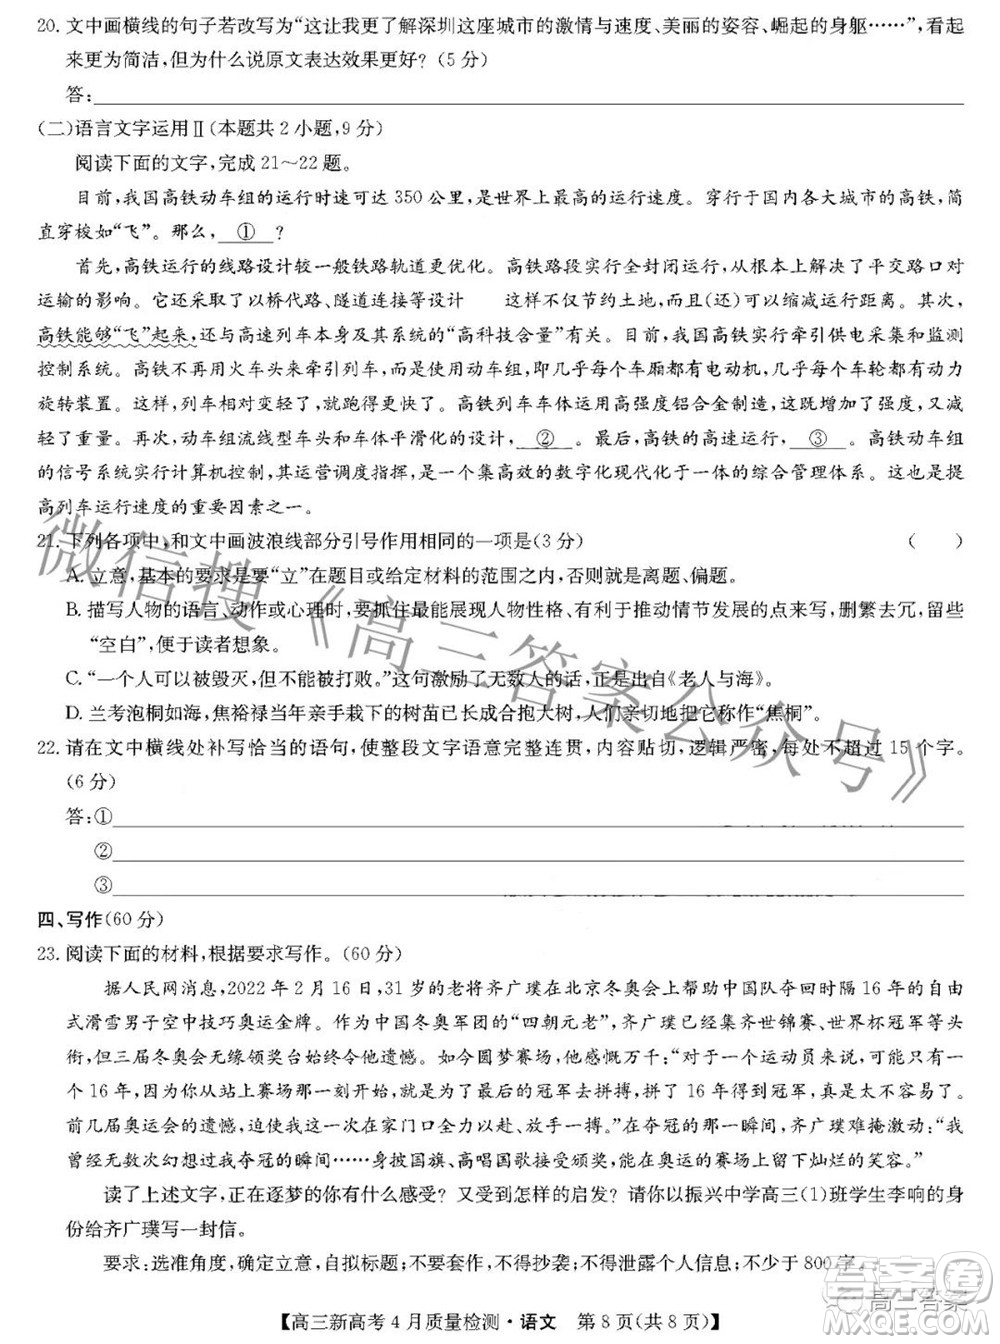 20. 文中画横线的句子若改写为“这让我更了解深圳这座城市的激情与速度、美丽的姿容、崛起的身躯……”,看起
来更为简洁,但为什么说原文表达效果更好?(5 分)
答:
(二)语言文字运用Ⅱ(本题共 2 小题,9 分)
阅读下面的文字,完成 21~22 题。
目前,我国高铁动车组的运行时速可达 350 公里,是世界上最高的运行速度。穿行于国内各大城市的高铁,简
直穿梭如“飞”。那么, ① ?
首先,高铁运行的线路设计较一般铁路轨道更优化。高铁路段实行全封闭运行,从根本上解决了平交路口对
运输的影响。其次它采取了以桥代路、隧道连接等设计 这样不仅节约土地,而且(还)可以缩减运行距离。其次,
高铁能够“飞”起来,还与高速列车本身及其系统的“高科技含量”有关。目前,我国高铁实行牵引供电采集和监测
控制系统。高铁不再用火车头来牵引列车,而使用动车组,即几乎每个车厢都有电动机,几乎每个车轮都有动力
旋转装置。这样,列车相对变轻了,就可以跑得更快了。高铁列车车体运用高强度铝合金制造,这样在强度上增加了,
减轻了重量。再次,动车组流线型车头和车体平滑化的设计, ② 。最后,高铁的高速运行, ③ 。高铁动车组
的信号系统实行计算机控制,其运营调度指挥,是一个集高效的数字化现代化于一体的综合管理体系。这也是提
高列车运行速度的重要因素之一。
21. 下列各项中,和文中画波浪线部分引号作用相同的一项是(3 分) ( )
A. 立意,基本的要求是要“立”在题目或给定材料的范围之内,否则就是离题、偏题。
B. 描写人物的语言、动作或心理时,要抓住最能展现人物性格、有助于推动情节发展的点来写,删繁去冗,留些
“空白”,便于读者想象。
C. “一个人可以被毁灭,但不能被打败。”这句激励了无数人的话,正是出自《老人与海》。
D. 兰考泡桐如海,焦裕禄当年亲手栽下的树苗已长成合抱大树,人们亲切地把它称作“焦桐”。
22. 请在文中横线处补写恰当的语句,使整段文字语意完整连贯,内容贴切,逻辑严密,每处不超过 15 个字。
(6 分)
答:①
②
③
四、写作(60 分)
23. 阅读下面的材料,根据要求写作。(60 分)
据人民网消息,2022 年 2 月 16 日,31 岁的老将齐广璞在北京冬奥会上帮助中国队夺回时隔 16 年的自由
式滑雪男子空中技巧奥运金牌。作为中国冬奥军团的“四朝元老”,齐广璞已经集齐世锦赛、世界杯冠军等头
衔,但三届冬奥会无缘领奖台始终令他遗憾。如今圆梦赛场,他感慨万千:“对于一个运动员来说,可能真没有几
个 16 年,你从站上赛场那一刻开始,就是在为最后的冠军去拼搏,拼了 16 年获得了冠军,真的特别不容易。
前几届奥运会的遗憾,迫使我这次在家门口全力以赴,做一番拼搏。”在夺冠的那一瞬间,齐广璞难掩激动:“我
曾经无数次幻想夺冠的那一瞬间……身披国旗、高唱国歌接受颁奖,能在奥运的赛场上留下灿烂的笑容。”
读了上述文字,正在逐梦的你有怎样的感受?又受到怎样的启发?请你以振兴中学高三(1)班学生李响的身
份给齐广璞写一封信。
要求:选准角度,确定立意,自拟标题;不要套作,不得抄袭;不得泄露个人信息;不少于 800 字。
【高三新高考 4 月质量检测·语文 第 8 页(共 8 页)】
微信搜《高三答案公众号》
高三答案
MXQE.COM